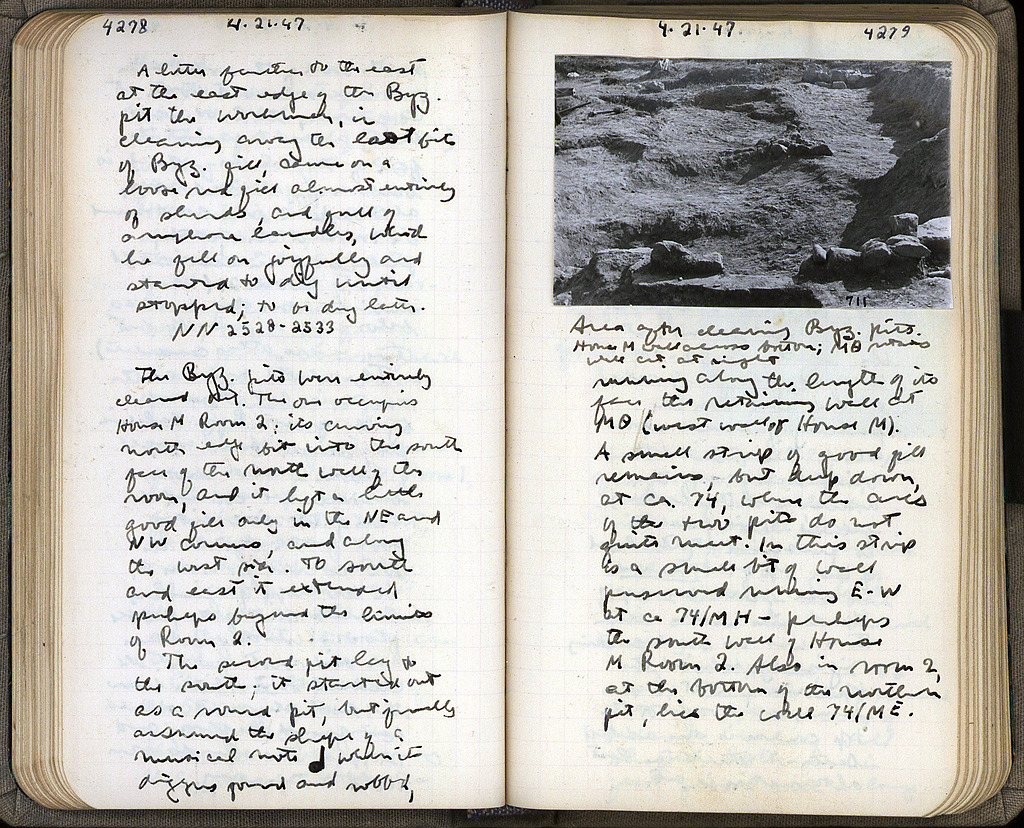 4278
4.21.47
A little further to the east
at the east edge of the Byz.
pit the workman, in
cleaning away the last bit
of Byz. fill, came on a
loose red fill almost entirely
of sherds, and full of
amphora handles, which
he fell on joyfully and
started to dig until
stopped; to be dug later.
NN 2528-2533
The Byz. pits were entirely
cleared out. The one occupies
House M Room 2; its curving
north edge bit into the south
face of the north wall of the
room, and it left a little
good fill only in the NE and
NW corners, and along
the west side. To south
and east it extended
perhaps beyond the limits
of Room 2.
The second pit lay to
the south; it started out
as a round pit, but finally
assumed the shape of a
musical note ♩ when its
diggers found and robbed,
4.21.47
4279
711
Area after clearing Byz. pits.
House M wall across bottom; MΘ
wall cut at right
running along the length of its
face, the retaining wall at
MΘ (west wall of House M).
A small strip of good fill
remains, but deep down,
at ca. 74, where the arcs
of the two pits do not
quite meet. In this strip
is a small bit of wall
preserved running E-W
at ca 74/MH - perhaps
the south wall of House
M Room 2. Also in room 2,
at the bottom of the northern
pit, lies the wall 74/ME.